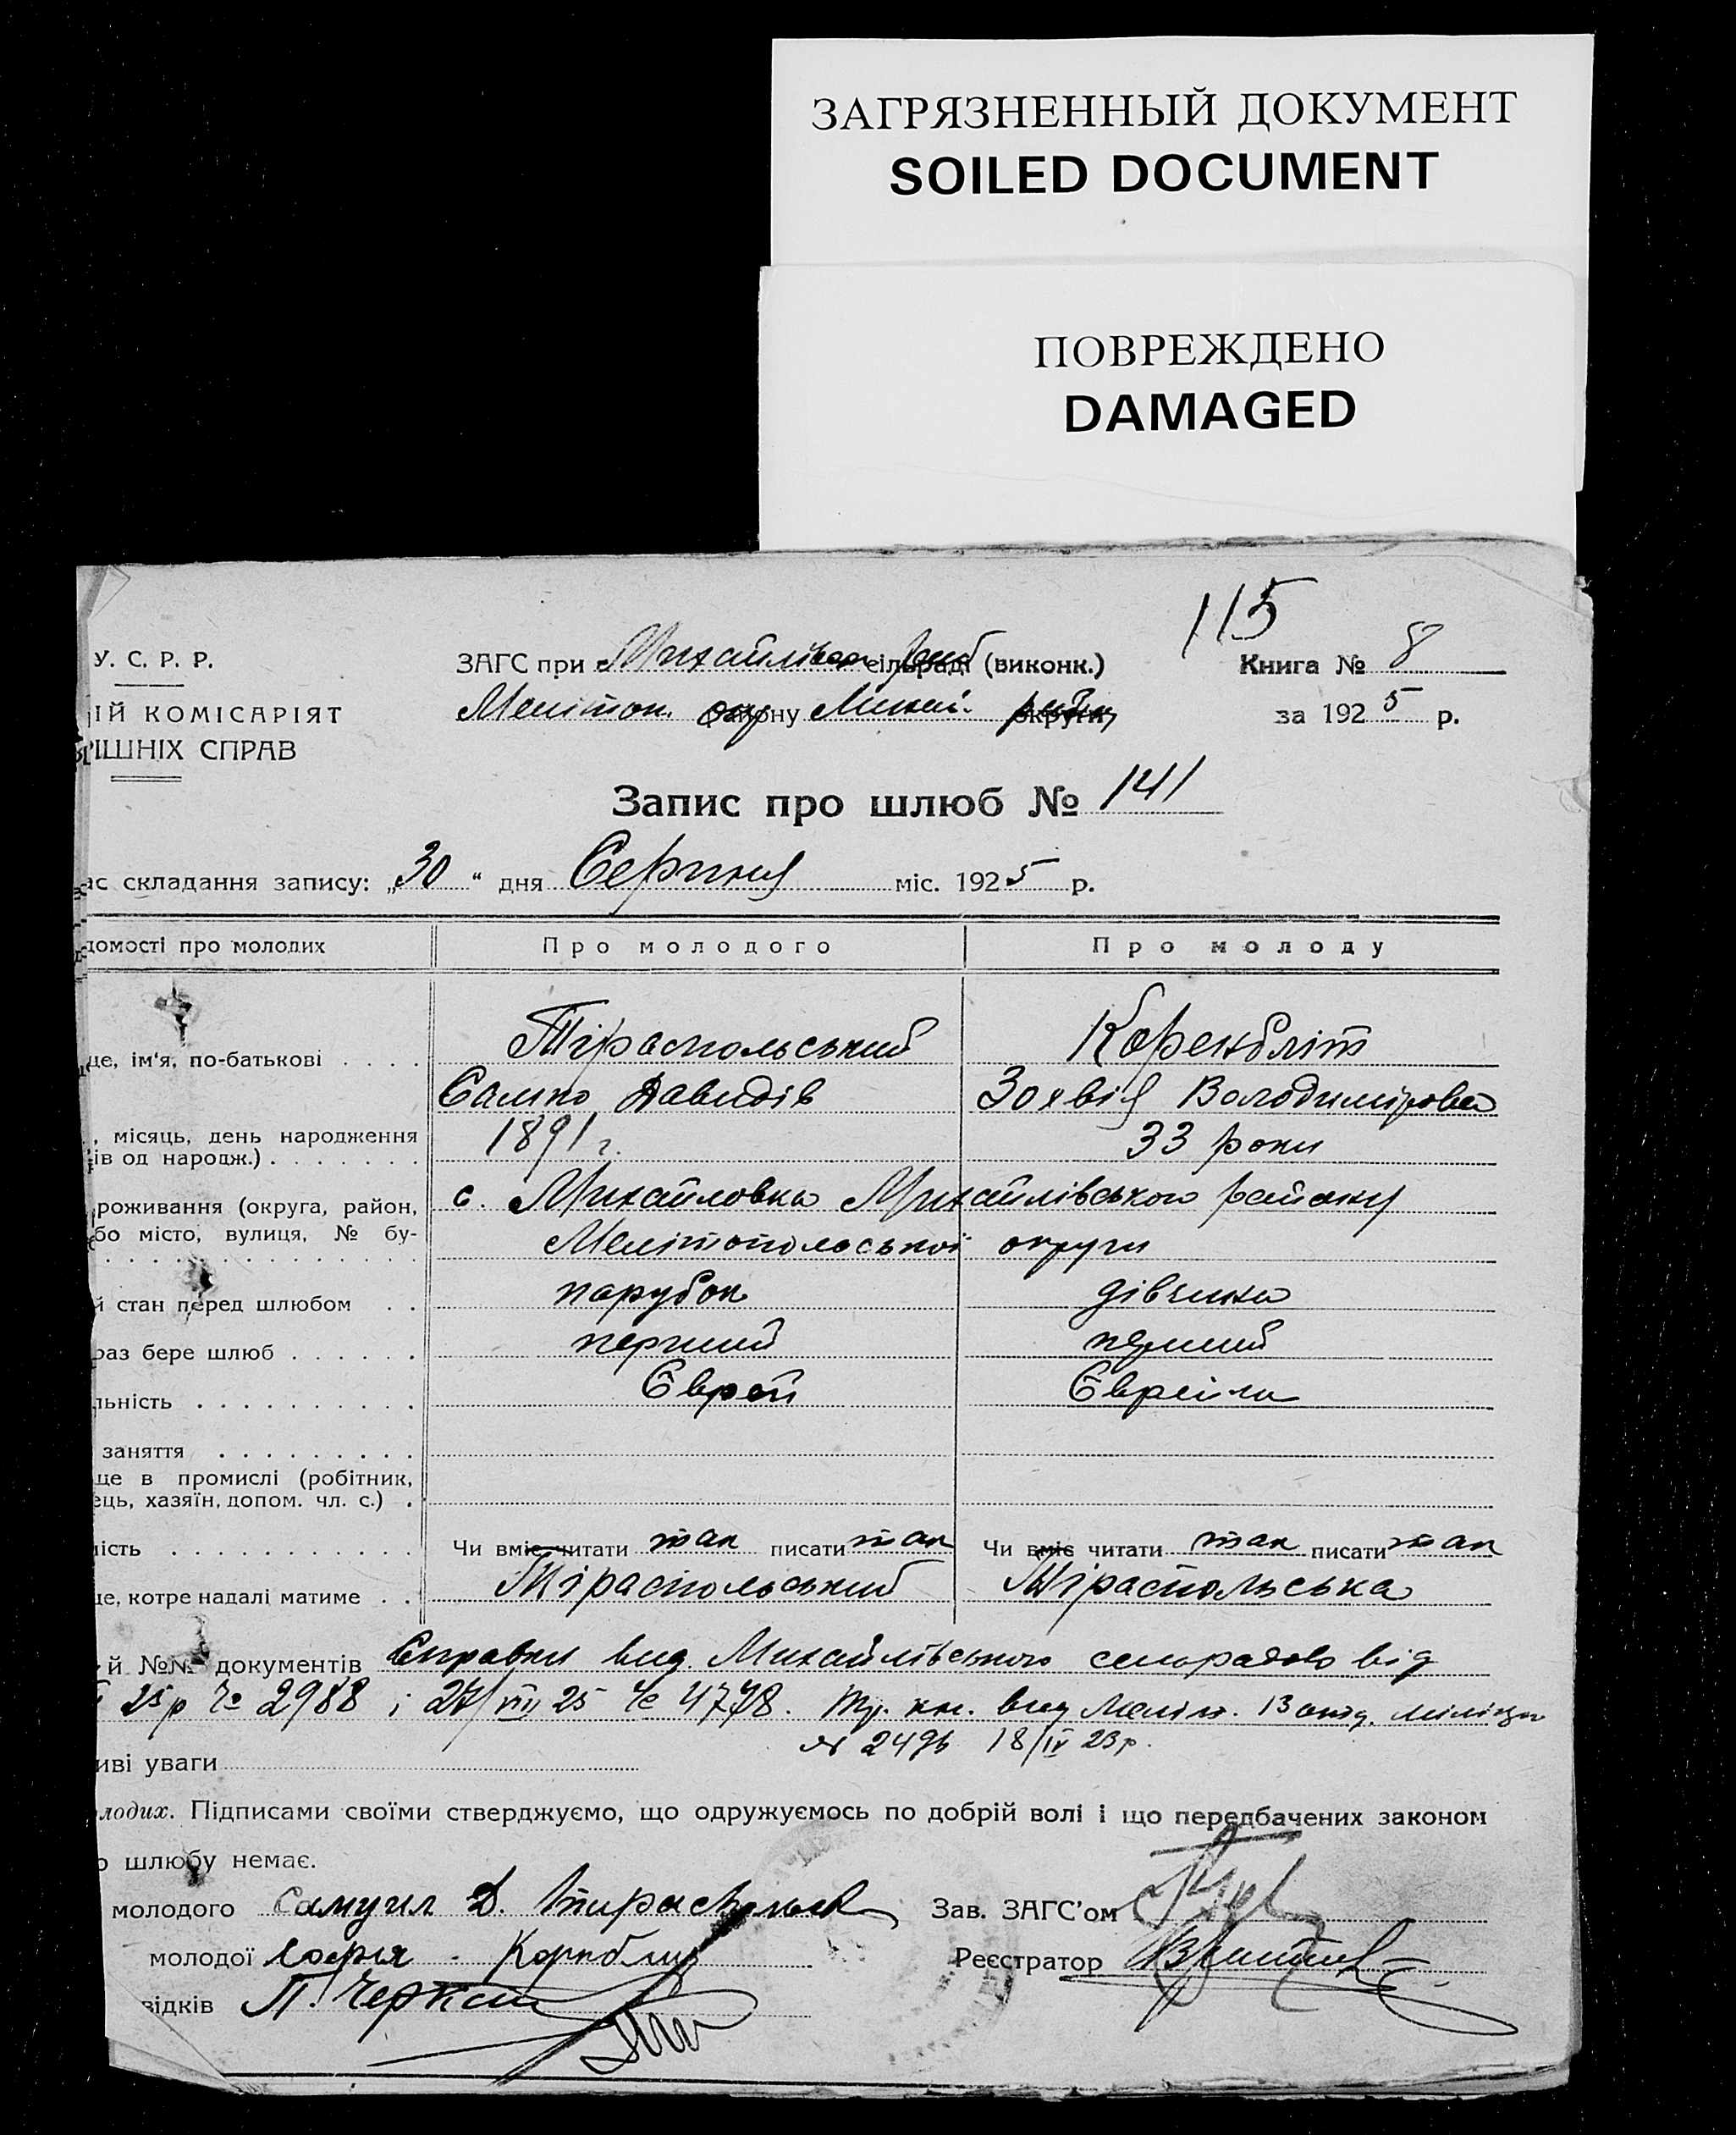 ЗАГРЯЗНЕННЫЙ ДОКУМЕНТ
SOILED DOCUMENT
ПОВРЕЖДЕНО
DAMAGED
115
У. С. Р. Р.
ЗАГС при Михайлівськ сільраді (виконк.)
Книга № 8
ІЙ КОМІСАРІЯТ
Мелітоп. окр району Михай. округи
за 1925 р.
РІШНІХ СПРАВ
Запис про шлюб № 141
ас складання запису: „30“ дня Серпня міс. 1925 р.
домості про молодих
Про молодого
Про молоду
Тіраспольський
Коренбліт
це, ім'я, по-батькові
Самло Давидів
Зохвія Володимірова
, місяць, день народження
ів од народж.)
1891 г.
33 роки
роживання (округа, район,
бо місто, вулиця, № бу-
с. Михайловка Михайлівського району
Мелітопольської округи
й стан перед шлюбом
парубок
дівчина
раз бере шлюб
перший
перший
льність
Єврей
Єврейка
заняття
ще в промислі (робітник,
ець, хазяїн, допом. чл. с.)
ість
Чи вміє читати так писати так
Чи вміє читати так писати так
це, котре надалі матиме
Тіраспольський
Тіраспольська
й №№ документів Справки вид Михайлівського селорадою від
25 р № 2988 і 27/VIII 25 № 4778. Тр. кн. вид Меліт. міліции
№ 2496 18/IV 23 р.
иві уваги
лодих. Підписами своїми стверджуємо, що одружуємось по добрій волі і що передбачених законом
о шлюбу немає.
молодого Самуил Д. Тираспольск
Зав. ЗАГС'ом
молодої Софья Корнблит
Реєстратор
відків П. Черкас